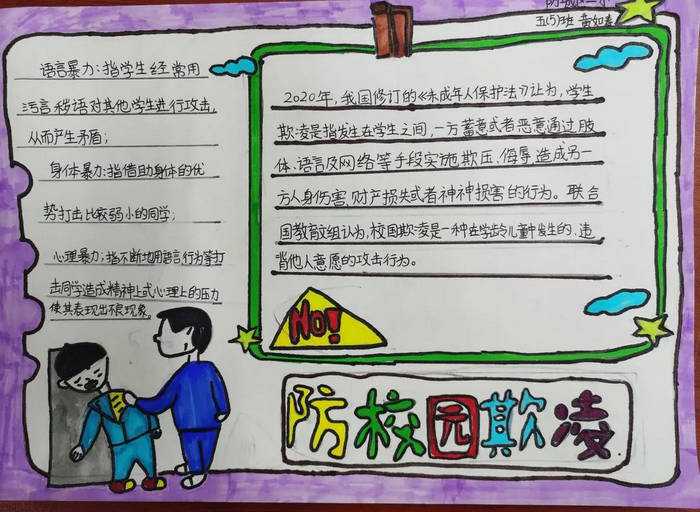 五(5)班 黄如
语言暴力:指学生经常用
污言秽语对其他学生进行攻击,
从而产生矛盾;
身体暴力:指借助身体的优
势打击比较弱小的同学;
心理暴力:指不断地用语言行为等打
击同学造成精神上式心理上的压力
使其表现出不良现象。
2020年,我国修订的《未成年人保护法》认为,学生
欺凌是指发生在学生之间,一方蓄意或者恶意通过肢
体、语言及网络等手段实施欺压、侮辱,造成另一
方人身伤害,财产损失或者神神损害的行为。联合
国教育文组认为,校园欺凌是一种在学龄儿童中发生的、违
背他人意愿的攻击行为。
No!
防校园欺凌